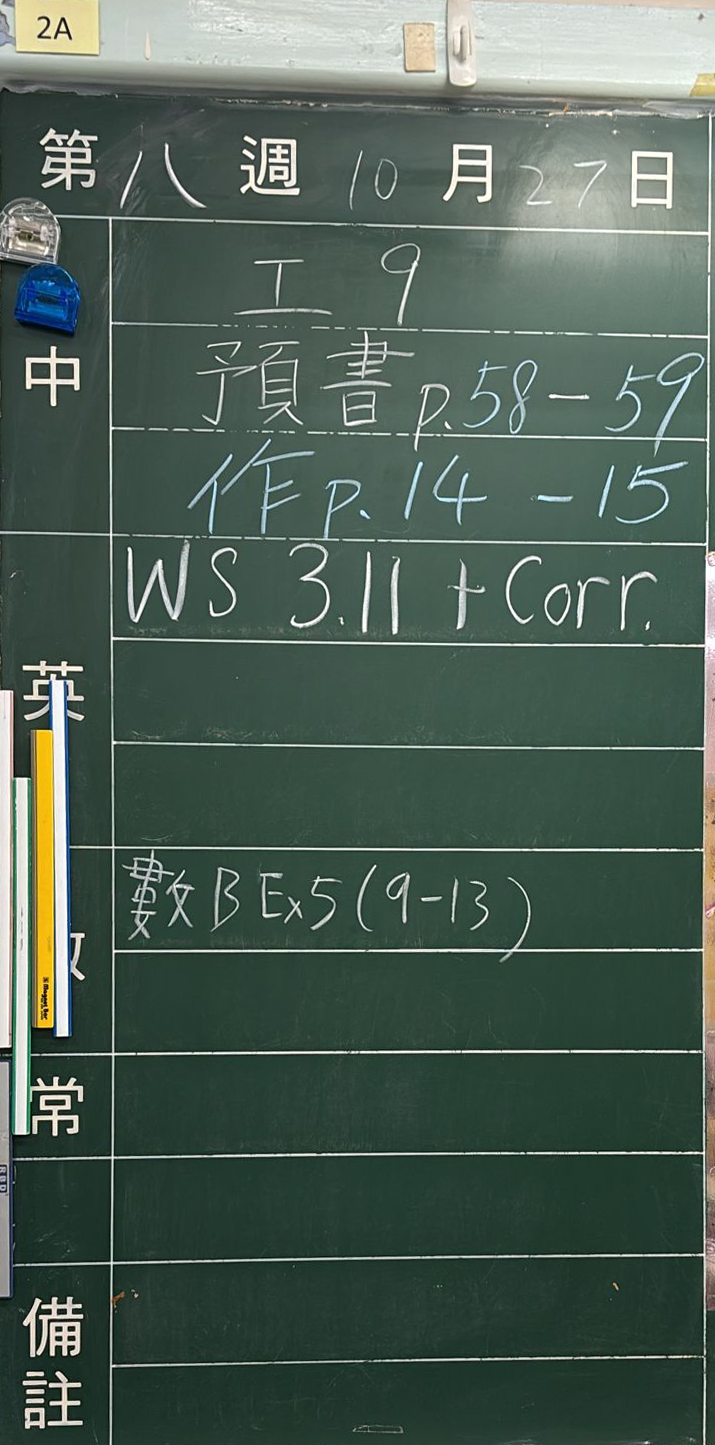 2A
第八週10月27日
工9
中
預書p.58-59
作p.14-15
WS 3.11 + Corr.
英
數B Ex5(9-13)
常
備
註